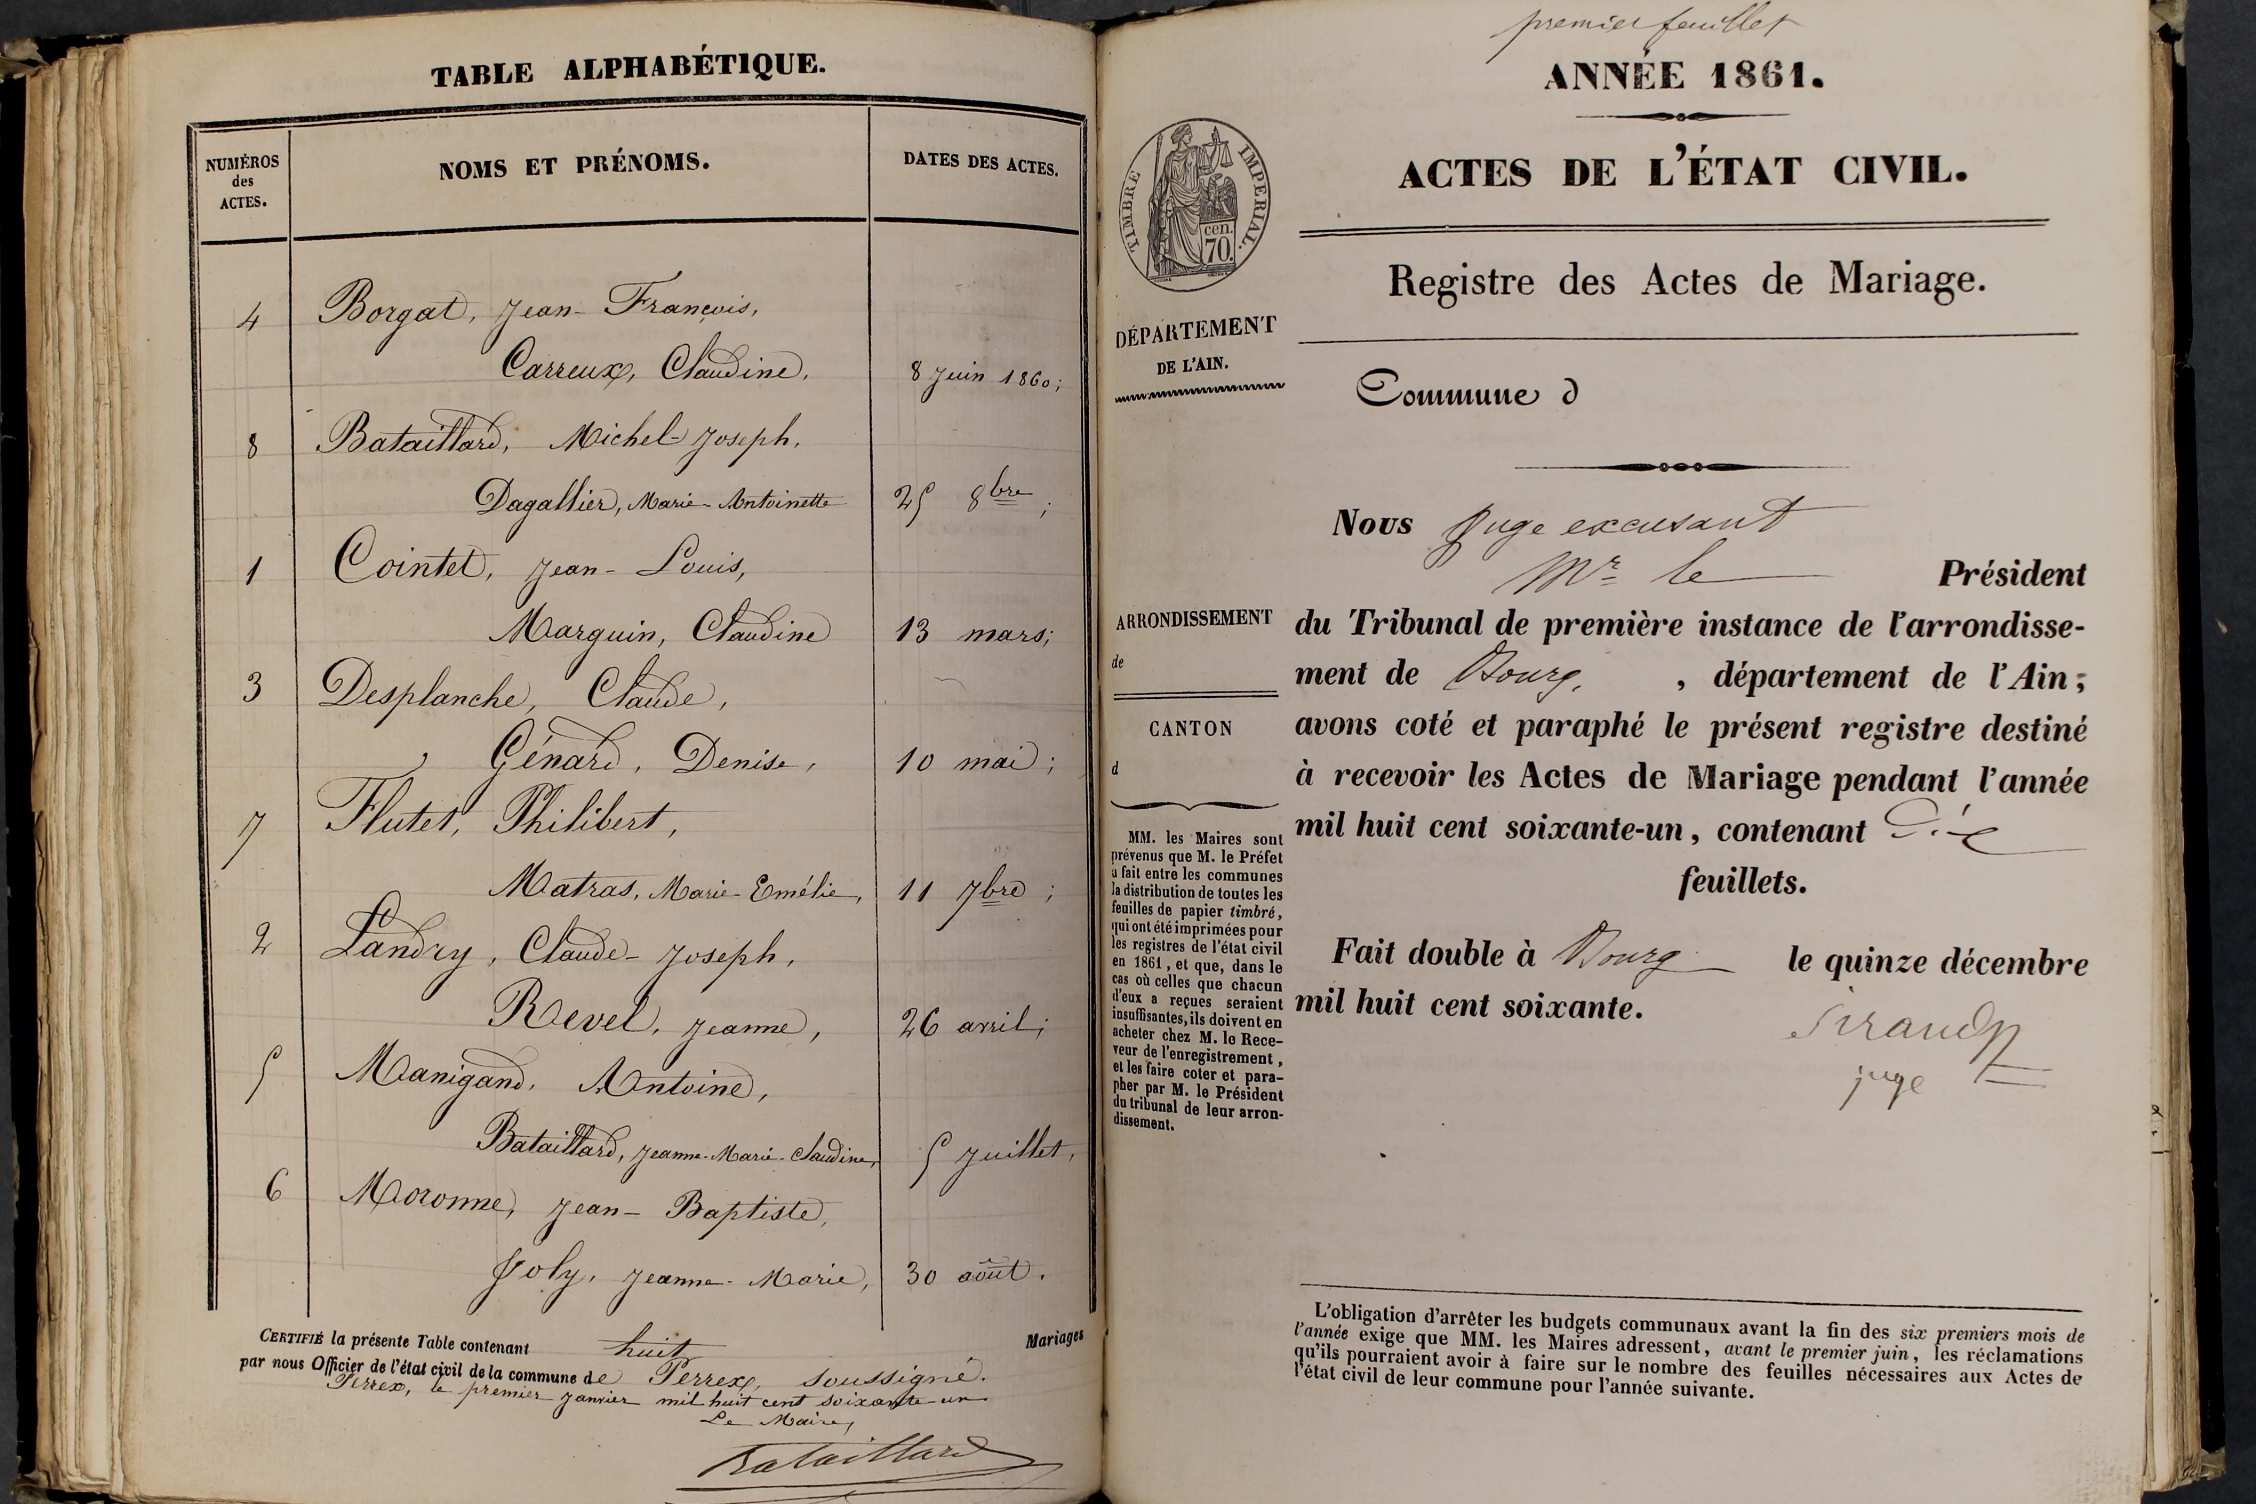 TABLE ALPHABÉTIQUE.
NUMÉROS des ACTES.
NOMS ET PRÉNOMS.
DATES DES ACTES.
4 Borgat, Jean-François,
Carreux, Claudine, 8 Juin 1860;
8 Bataillard, Michel-Joseph,
Dagallier, Marie-Antoinette 25 8bre;
1 Cointet, Jean-Louis,
Marguin, Claudine 13 mars;
3 Desplanche, Claude,
Génard, Denise, 10 mai;
7 Flutet, Philibert,
Matras, Marie-Emélie, 11 7bre;
2 Landry, Claude-Joseph,
Revel, Jeanne, 26 avril;
5 Manigand, Antoine,
Bataillard, Jeanne-Marie-Claudine, 5 Juillet,
6 Moronne, Jean-Baptiste,
Joly, Jeanne-Marie, 30 août.
CERTIFIÉ la présente Table contenant huit Mariages
par nous Officier de l'état civil de la commune de Perrex, soussigné.
Perrex, le premier Janvier mil huit cent soixante-un
Le Maire,
Bataillard
premier feuillet
ANNÉE 1861.
ACTES DE L'ÉTAT CIVIL.
TIMBRE IMPERIAL.
70 cen.
Registre des Actes de Mariage.
DÉPARTEMENT
DE L'AIN.
Commune d
Nous Juge excusant
Mr le Président
ARRONDISSEMENT
de
du Tribunal de première instance de l'arrondisse-
ment de Bourg, , département de l'Ain;
CANTON
d
avons coté et paraphé le présent registre destiné
à recevoir les Actes de Mariage pendant l'année
mil huit cent soixante-un, contenant Dix
feuillets.
Fait double à Bourg le quinze décembre
mil huit cent soixante.
juge
MM. les Maires sont
prévenus que M. le Préfet
a fait entre les communes
la distribution de toutes les
feuilles de papier timbré,
qui ont été imprimées pour
les registres de l'état civil
en 1861, et que, dans le
cas où celles que chacun
d'eux a reçues seraient
insuffisantes, ils doivent en
acheter chez M. le Rece-
veur de l'enregistrement,
et les faire coter et para-
pher par M. le Président
du tribunal de leur arron-
dissement.
L'obligation d'arrêter les budgets communaux avant la fin des six premiers mois de
l'année exige que MM. les Maires adressent, avant le premier juin, les réclamations
qu'ils pourraient avoir à faire sur le nombre des feuilles nécessaires aux Actes de
l'état civil de leur commune pour l'année suivante.